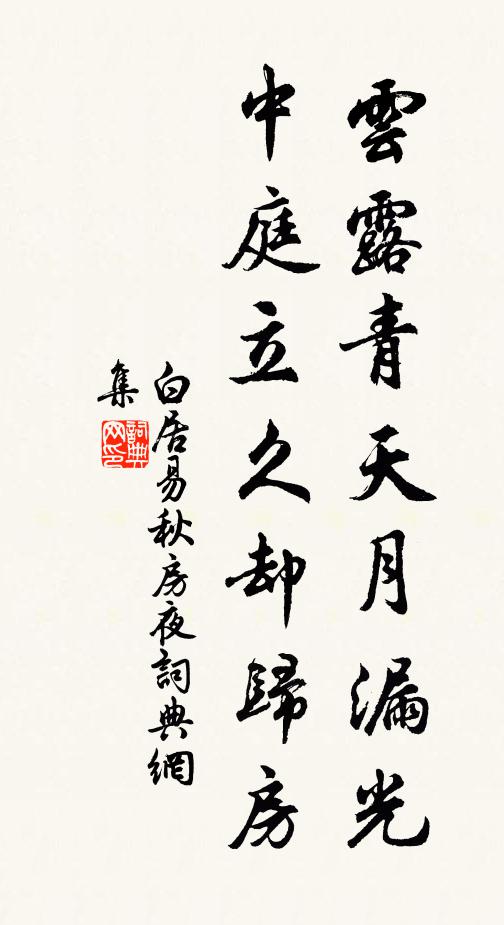 雲露青天月漏光
中庭立久却歸房
白居易秋房夜詞典網
集
詞典
网印